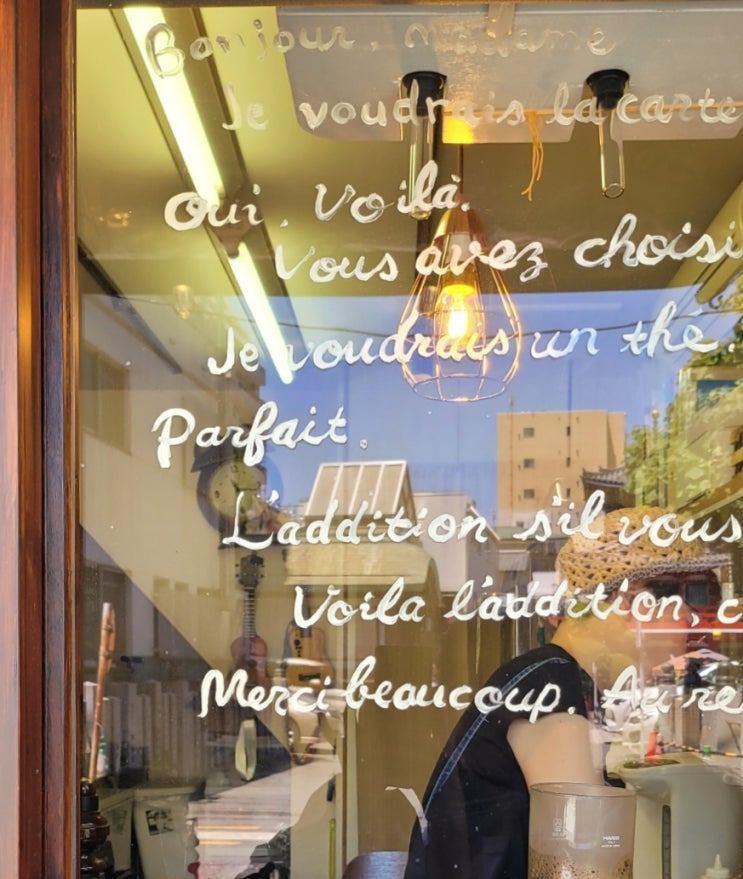 Bonjour, madame
Je voudrais la carte
Oui, Voilà.
Vous avez choisi
Je voudrais un thé.
Parfait.
L'addition s'il vous
Voila l'addition, c
Merci beaucoup. Au re
HARIO